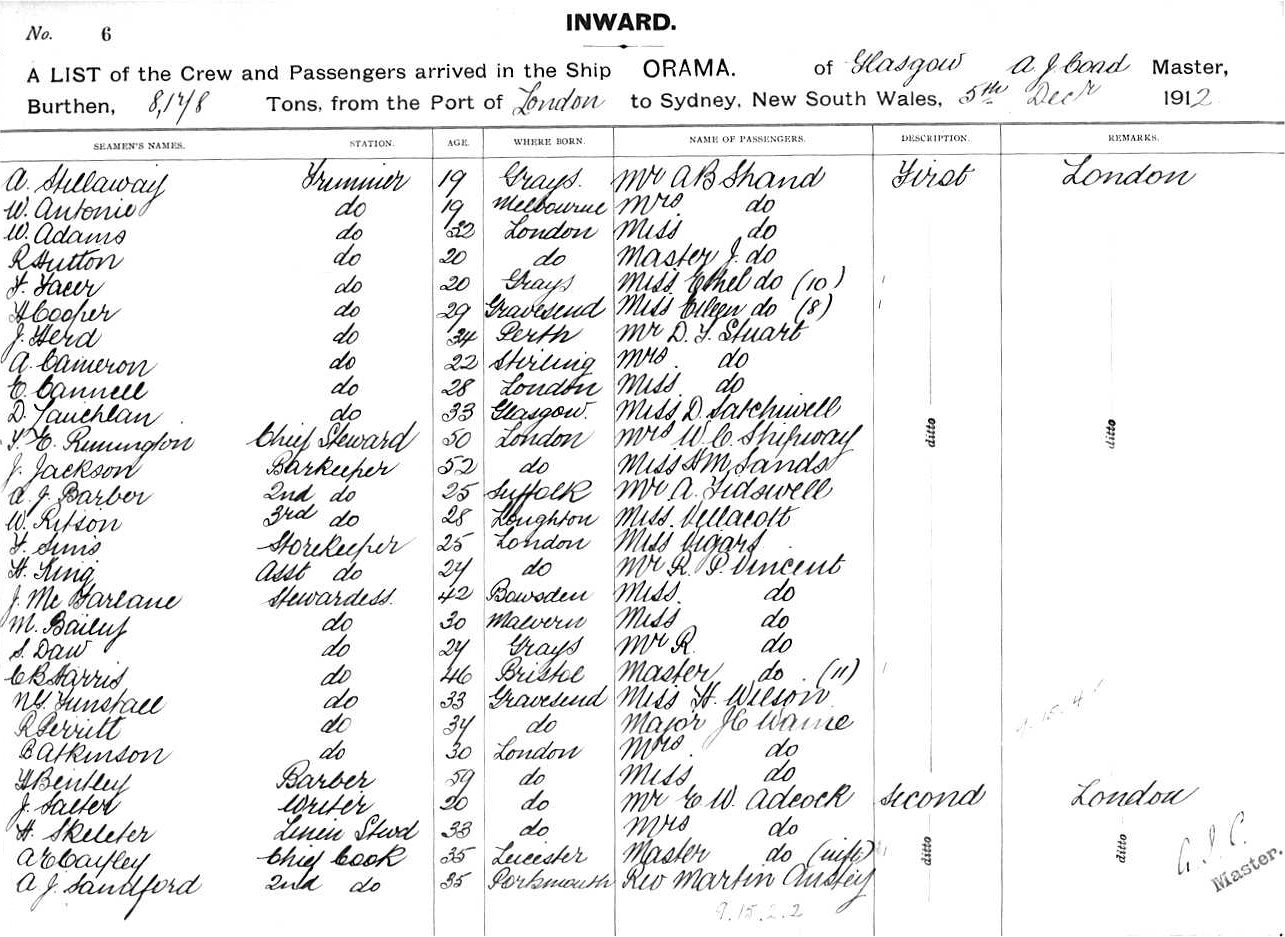 No. 6
INWARD.
A LIST of the Crew and Passengers arrived in the Ship ORAMA. of Glasgow A J Coad Master,
Burthen, 8,178 Tons, from the Port of London to Sydney, New South Wales, 5th Decr 1912
SEAMEN'S NAMES. STATION. AGE. WHERE BORN. NAME OF PASSENGERS. DESCRIPTION. REMARKS.
A. Stillaway Trimmer 19 Grays. Mr A B Shand First London
W. Antonie do 19 Melbourne Mrs do
W. Adams do 32 London Miss do
R Hutton do 20 do Master J. do
F. Facer do 20 Grays Miss Ethel do (10)
H Cooper do 29 Gravesend Miss Eileen do (8)
J. Herd do 34 Perth Mr D. F. Stuart
A. Cameron do 22 Stirling Mrs. do
E. Cannell do 28 London Miss do
D. Lauchlan do 33 Glasgow. Miss D. Satchwell
T. E. Rimington Chief Steward 50 London Mrs W. C. Shipway ditto ditto
J. Jackson Barkeeper 52 do Miss H M, Sands
A. J. Barber 2nd do 25 Suffolk Mr A. Tidswell
W. Ritson 3rd do 28 Loughton Miss. Vellacott
F. Sims Storekeeper 25 London Miss Vigars
H. King Asst do 24 do Mr R. P. Vincent
J. Mc Farlane Stewardess. 42 Bowsden Miss. do
M. Bailey do 30 Malvern Miss do
S. Daw do 24 Grays Mr R. do
C B Harris do 46 Bristol Master do. (11)
Tunstall do 33 Gravesend Miss H. Wilson
R Perritt do 34 do Major J C Warne
B Atkinson do 30 London Mrs. do
H Bentley Barber 59 do Miss do
J. Salter Writer 20 do Mr E. W. Adcock Second London
H. Skeleter Linen Stwd 33 do Mrs do
A E Cayley Chief Cook 35 Leicester Master do (inft) ditto ditto
A J. Sandford 2nd do 35 Portsmouth Rev Martin Anstey
A. J. C. Master.
9.15.2.2